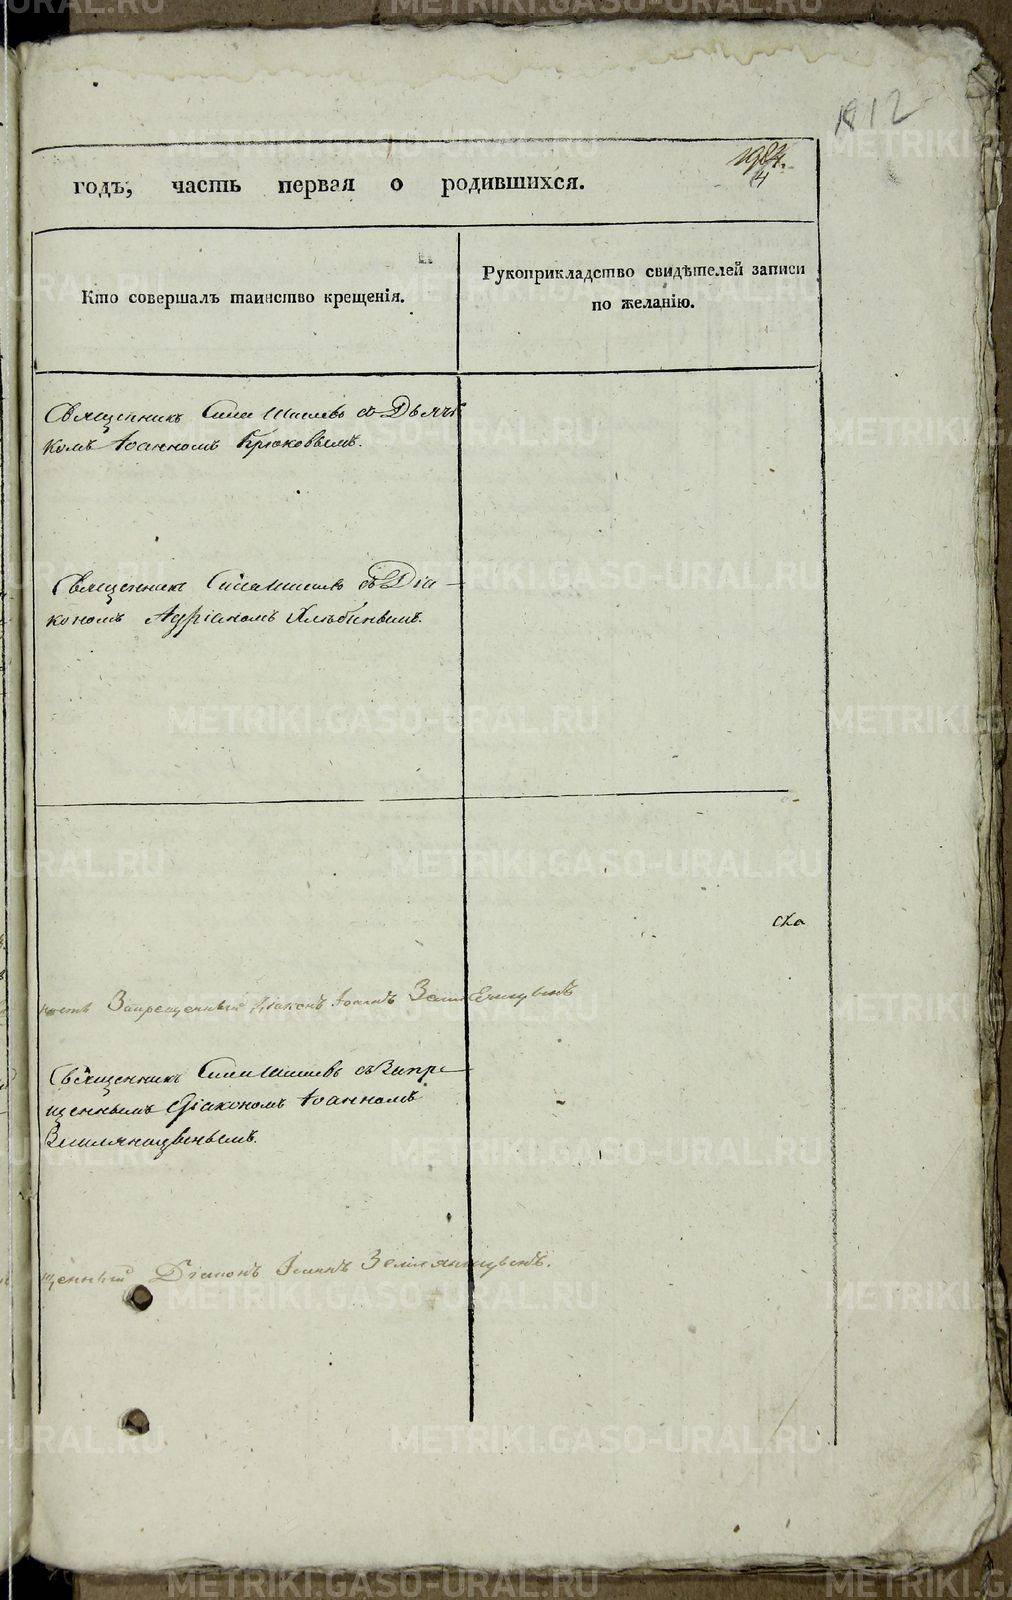 12
годъ, часть первая о родившихся.
Кто совершалъ таинство крещенія.
Рукоприкладство свидѣтелей записи
по желанію.
Священникъ Сила Шишевъ съ Дьяч
комъ Іоанномъ Крюковымъ.
Священникъ Сила Шишевъ съ Діа-
кономъ Адріаномъ Хлѣбинымъ.
Запрещенный Діаконъ Іоаннъ
Священникъ Сила Шишевъ съ Запре-
щеннымъ Діакономъ Іоанномъ
Земляницынымъ.
щенный Діаконъ Іоаннъ Земляницынъ.
METRIKI.GASO-URAL.RU